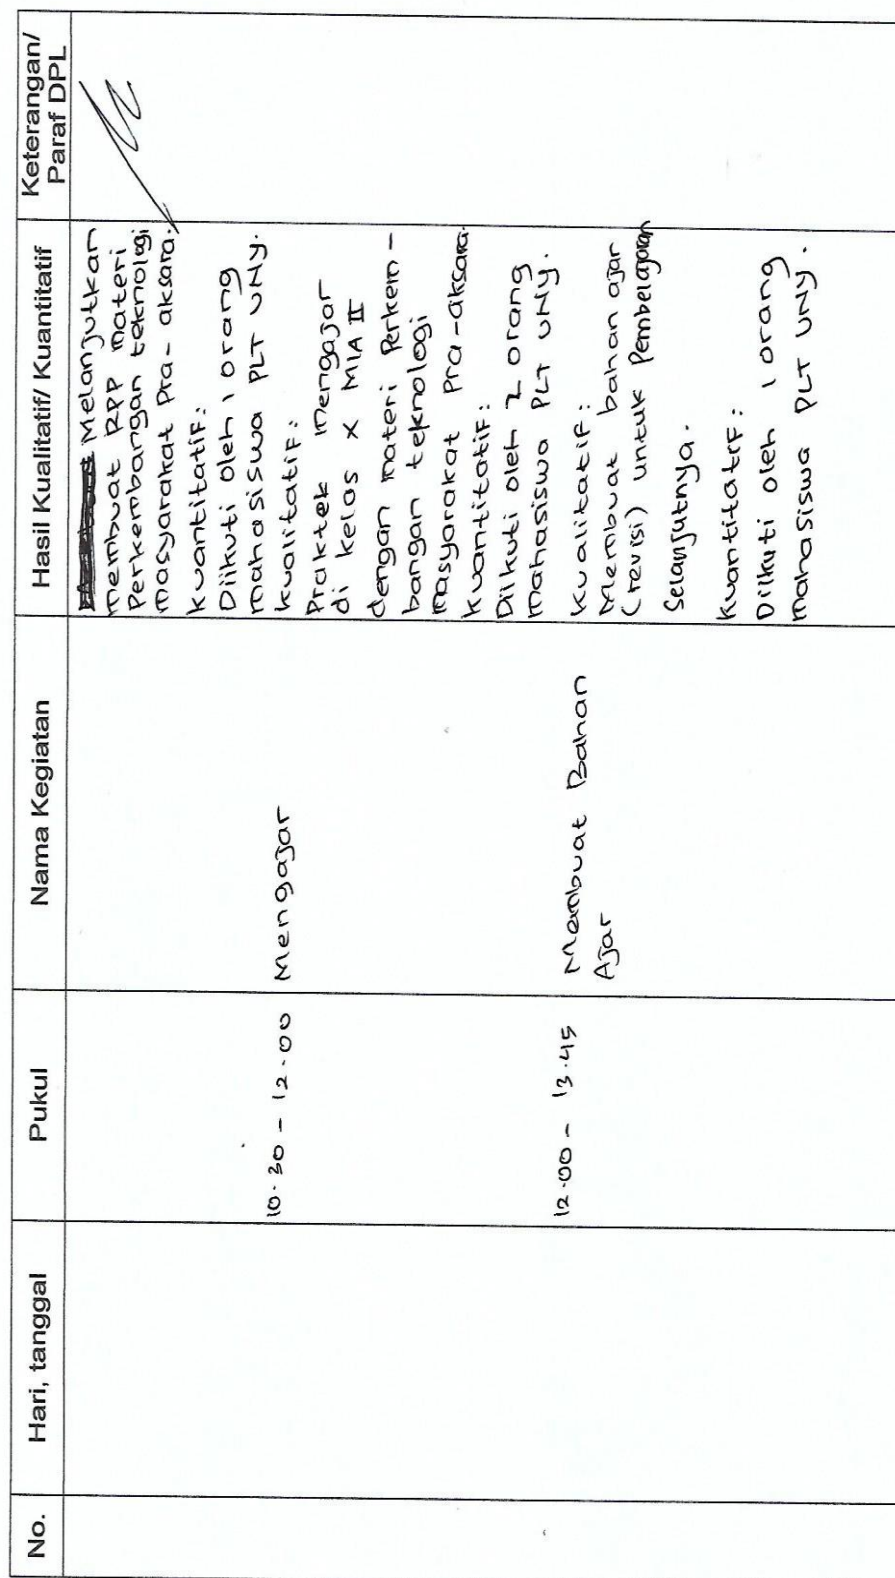 No.
Hari, tanggal
Pukul
Nama Kegiatan
Hasil Kualitatif/ Kuantitatif
Keterangan/
Paraf DPL
Melanjutkan
membuat RPP materi
Perkembangan teknologi
masyarakat Pra-aksara.
kuantitatif:
Diikuti oleh 1 orang
mahasiswa PLT UNY.
10.30 - 12.00
Mengajar
kualitatif:
Praktek mengajar
di kelas X MIA II
dengan materi Perkem-
bangan teknologi
masyarakat Pra-aksara.
kuantitatif:
Diikuti oleh 2 orang
mahasiswa PLT UNY.
12.00 - 13.45
Membuat Bahan
Ajar
kualitatif:
Membuat bahan ajar
(revisi) untuk Pembelajaran
Selanjutnya.
kuantitatif:
Diikuti oleh 1 orang
mahasiswa PLT UNY.